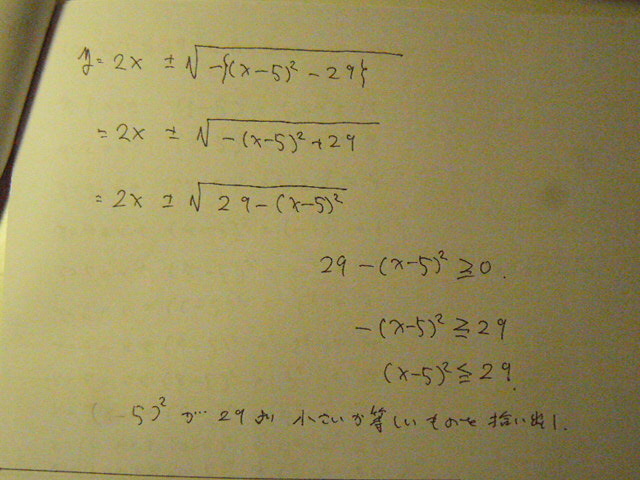 y = 2x ± √-{(x-5)² - 29}
= 2x ± √-(x-5)² + 29
= 2x ± √29 - (x-5)²
29 - (x-5)² ≧ 0.
-(x-5)² ≧ 29
(x-5)² ≦ 29.
(x-5)² が… 29より 小さいか等しいものを 拾い出し.